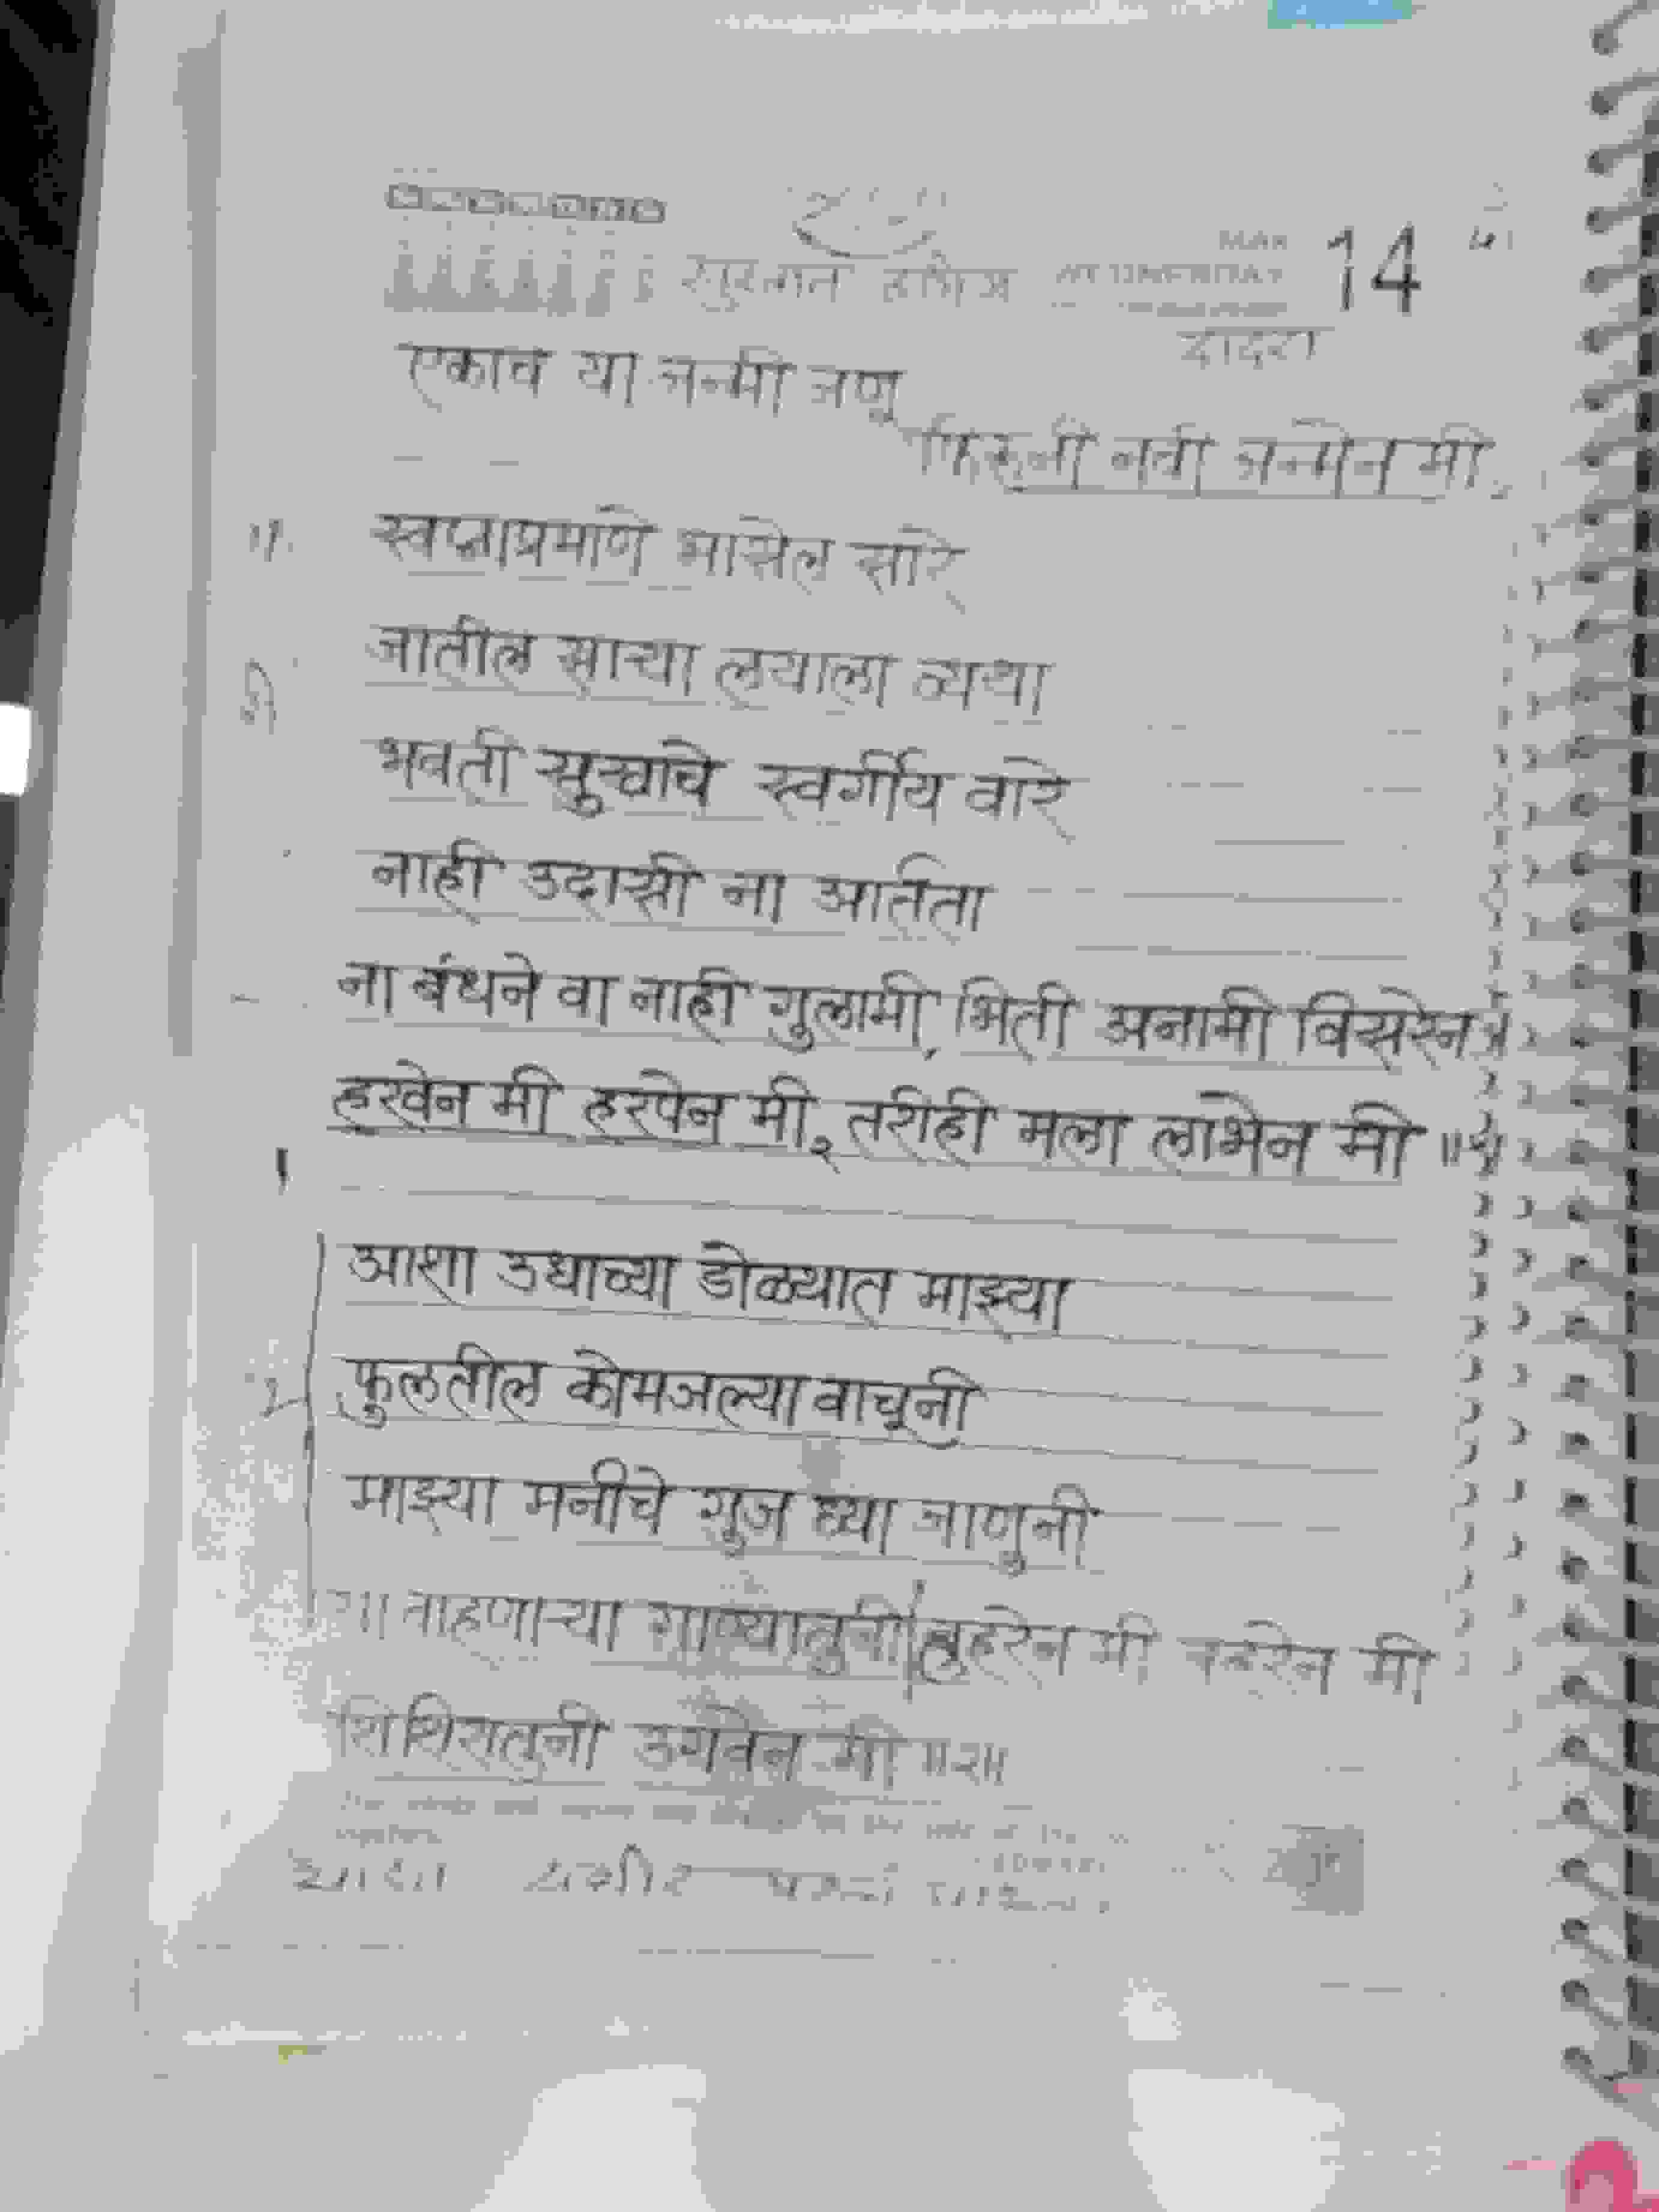 MAR 14
दादरा
एकाच या जन्मी जणू
फिरुनी नवी जन्मेन मी
स्वप्नाप्रमाणे भासेल सारे
जातील साऱ्या लयाला व्यथा
भवती सुखाचे स्वर्गीय वारे
नाही उदासी ना आर्तता
ना बंधने वा नाही गुलामी, भिती अनामी विसरेन
हरवेन मी हरपेन मी, तरीही मला लाभेन मी ॥१॥
आशा उद्याच्या डोळ्यात माझ्या
फुलतील कोमजल्या वाचूनी
माझ्या मनीचे गुज घ्या जाणुनी
वाहणाऱ्या गाण्यातुनी लहरेन मी बहरेन मी
शिशिरातुनी उगवेन मी ॥२॥